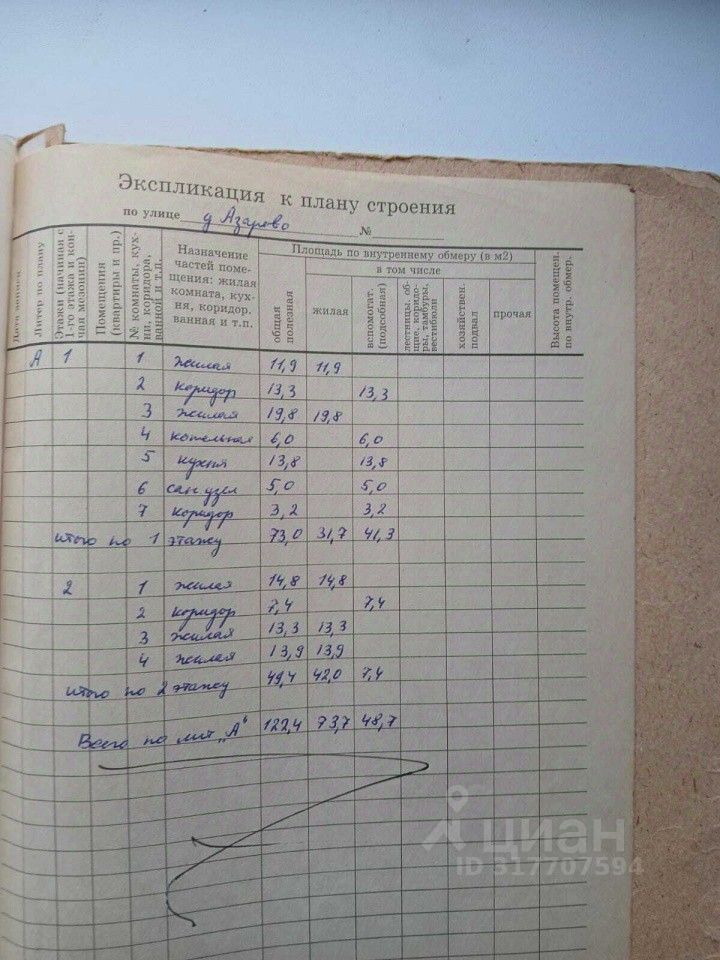 Экспликация к плану строения
по улице д Азарово №
Дата записи
Литер по плану
Этажи (начиная с 1-го этажа и кончая мезонин)
Помещения (квартиры и пр.)
№ комнаты, кухни, коридора, ванной и т.п.
Назначение
частей поме-
щения: жилая
комната, кух-
ня, коридор.
ванная и т.п.
Площадь по внутреннему обмеру (в м2)
в том числе
общая полезная
жилая
вспомогат. (подсобная)
лестницы, общие, коридоры, тамбуры, вестибюли
хозяйствен. подвал
прочая
Высота помещен. по внутр. обмер.
А 1 1 жилая 11,9 11,9
2 коридор 13,3 13,3
3 жилая 19,8 19,8
4 котельная 6,0 6,0
5 кухня 13,8 13,8
6 сан узел 5,0 5,0
7 коридор 3,2 3,2
итого по 1 этажу 73,0 31,7 41,3
2 1 жилая 14,8 14,8
2 коридор 7,4 7,4
3 жилая 13,3 13,3
4 жилая 13,9 13,9
итого по 2 этажу 49,4 42,0 7,4
Всего по лит „А" 122,4 73,7 48,7
циан
ID 317707594